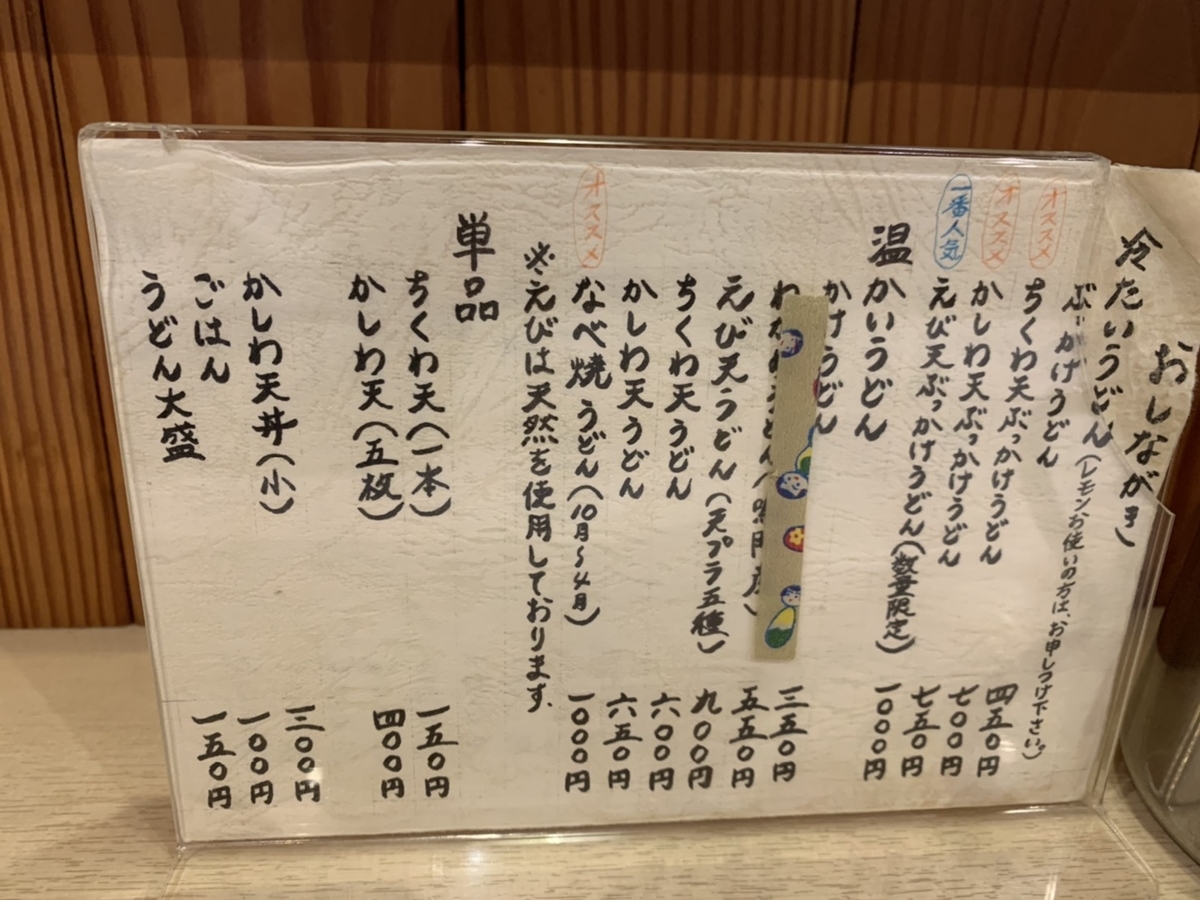 おしながき
冷たいうどん(レモンお使いの方は、お申しつけ下さい。)
ぶっかけうどん 四五〇円
オススメ
ちくわ天ぶっかけうどん 七〇〇円
オススメ
かしわ天ぶっかけうどん 七五〇円
一番人気
えび天ぶっかけうどん(数量限定) 一〇〇〇円
温かいうどん
かけうどん 三五〇円
わかめうどん( 五五〇円
えび天うどん(天プラ五種) 九〇〇円
ちくわ天うどん 六〇〇円
かしわ天うどん 六五〇円
オススメ
なべ焼うどん(10月~4月) 一〇〇〇円
※えびは天然を使用しております。
単品
ちくわ天(一本) 一五〇円
かしわ天(五枚) 四〇〇円
かしわ天丼(小) 三〇〇円
ごはん 一〇〇円
うどん大盛 一五〇円